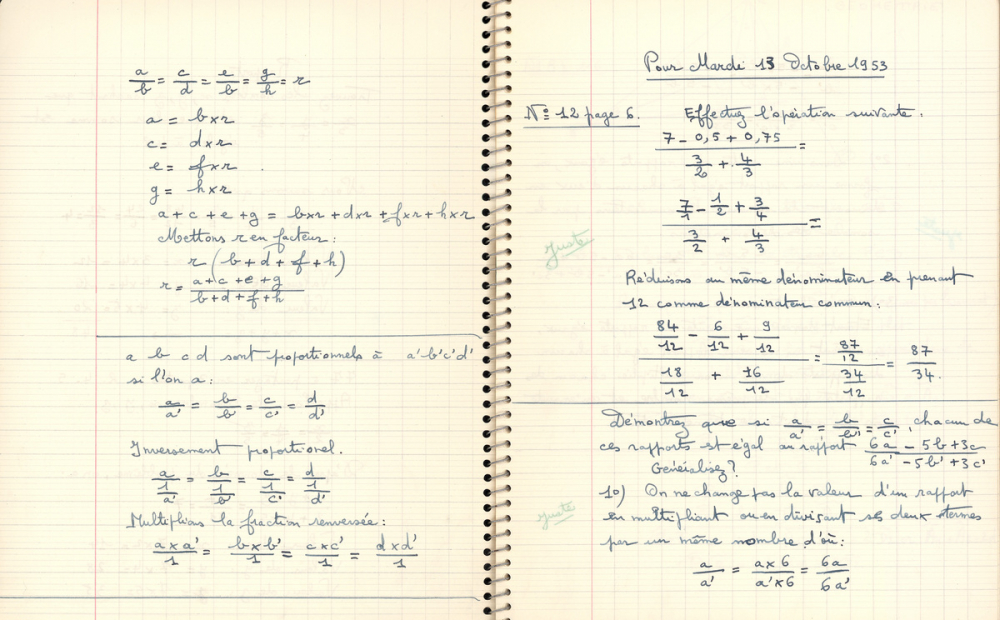 a/b = c/d = e/b = g/h = r
a = b×r
c = d×r
e = f×r
g = h×r
a + c + e + g = b×r + d×r + f×r + h×r
Mettons r en facteur :
r (b + d + f + h)
r = a + c + e + g / b + d + f + h
a b c d sont proportionnels à a' b' c' d'
si l'on a :
a/a' = b/b' = c/c' = d/d'
Inversement proportionel.
a/(1/a') = b/(1/b') = c/(1/c') = d/(1/d')
Multiplions la fraction renversée :
a × a'/1 = b × b'/1 = c × c'/1 = d × d'/1
Pour Mardi 13 Octobre 1953
N° 12 page 6. Effectuez l'opération suivante.
7 - 0,5 + 0,75 / 3/2 + 4/3 =
7/1 - 1/2 + 3/4 / 3/2 + 4/3 =
juste
Réduisons au même dénominateur en prenant
12 comme dénominateur commun :
84/12 - 6/12 + 9/12 / 18/12 + 16/12 = 87/12 / 34/12 = 87/34.
Démontrez que si a/a' = b/b' = c/c', chacun de
ces rapports est égal au rapport 6a - 5b + 3c / 6a' - 5b' + 3c'
Généralisez ?
1°) On ne change pas la valeur d'un rapport
juste
en multipliant ou en divisant ses deux termes
par un même nombre d'où :
a/a' = a × 6/a' × 6 = 6a/6a'